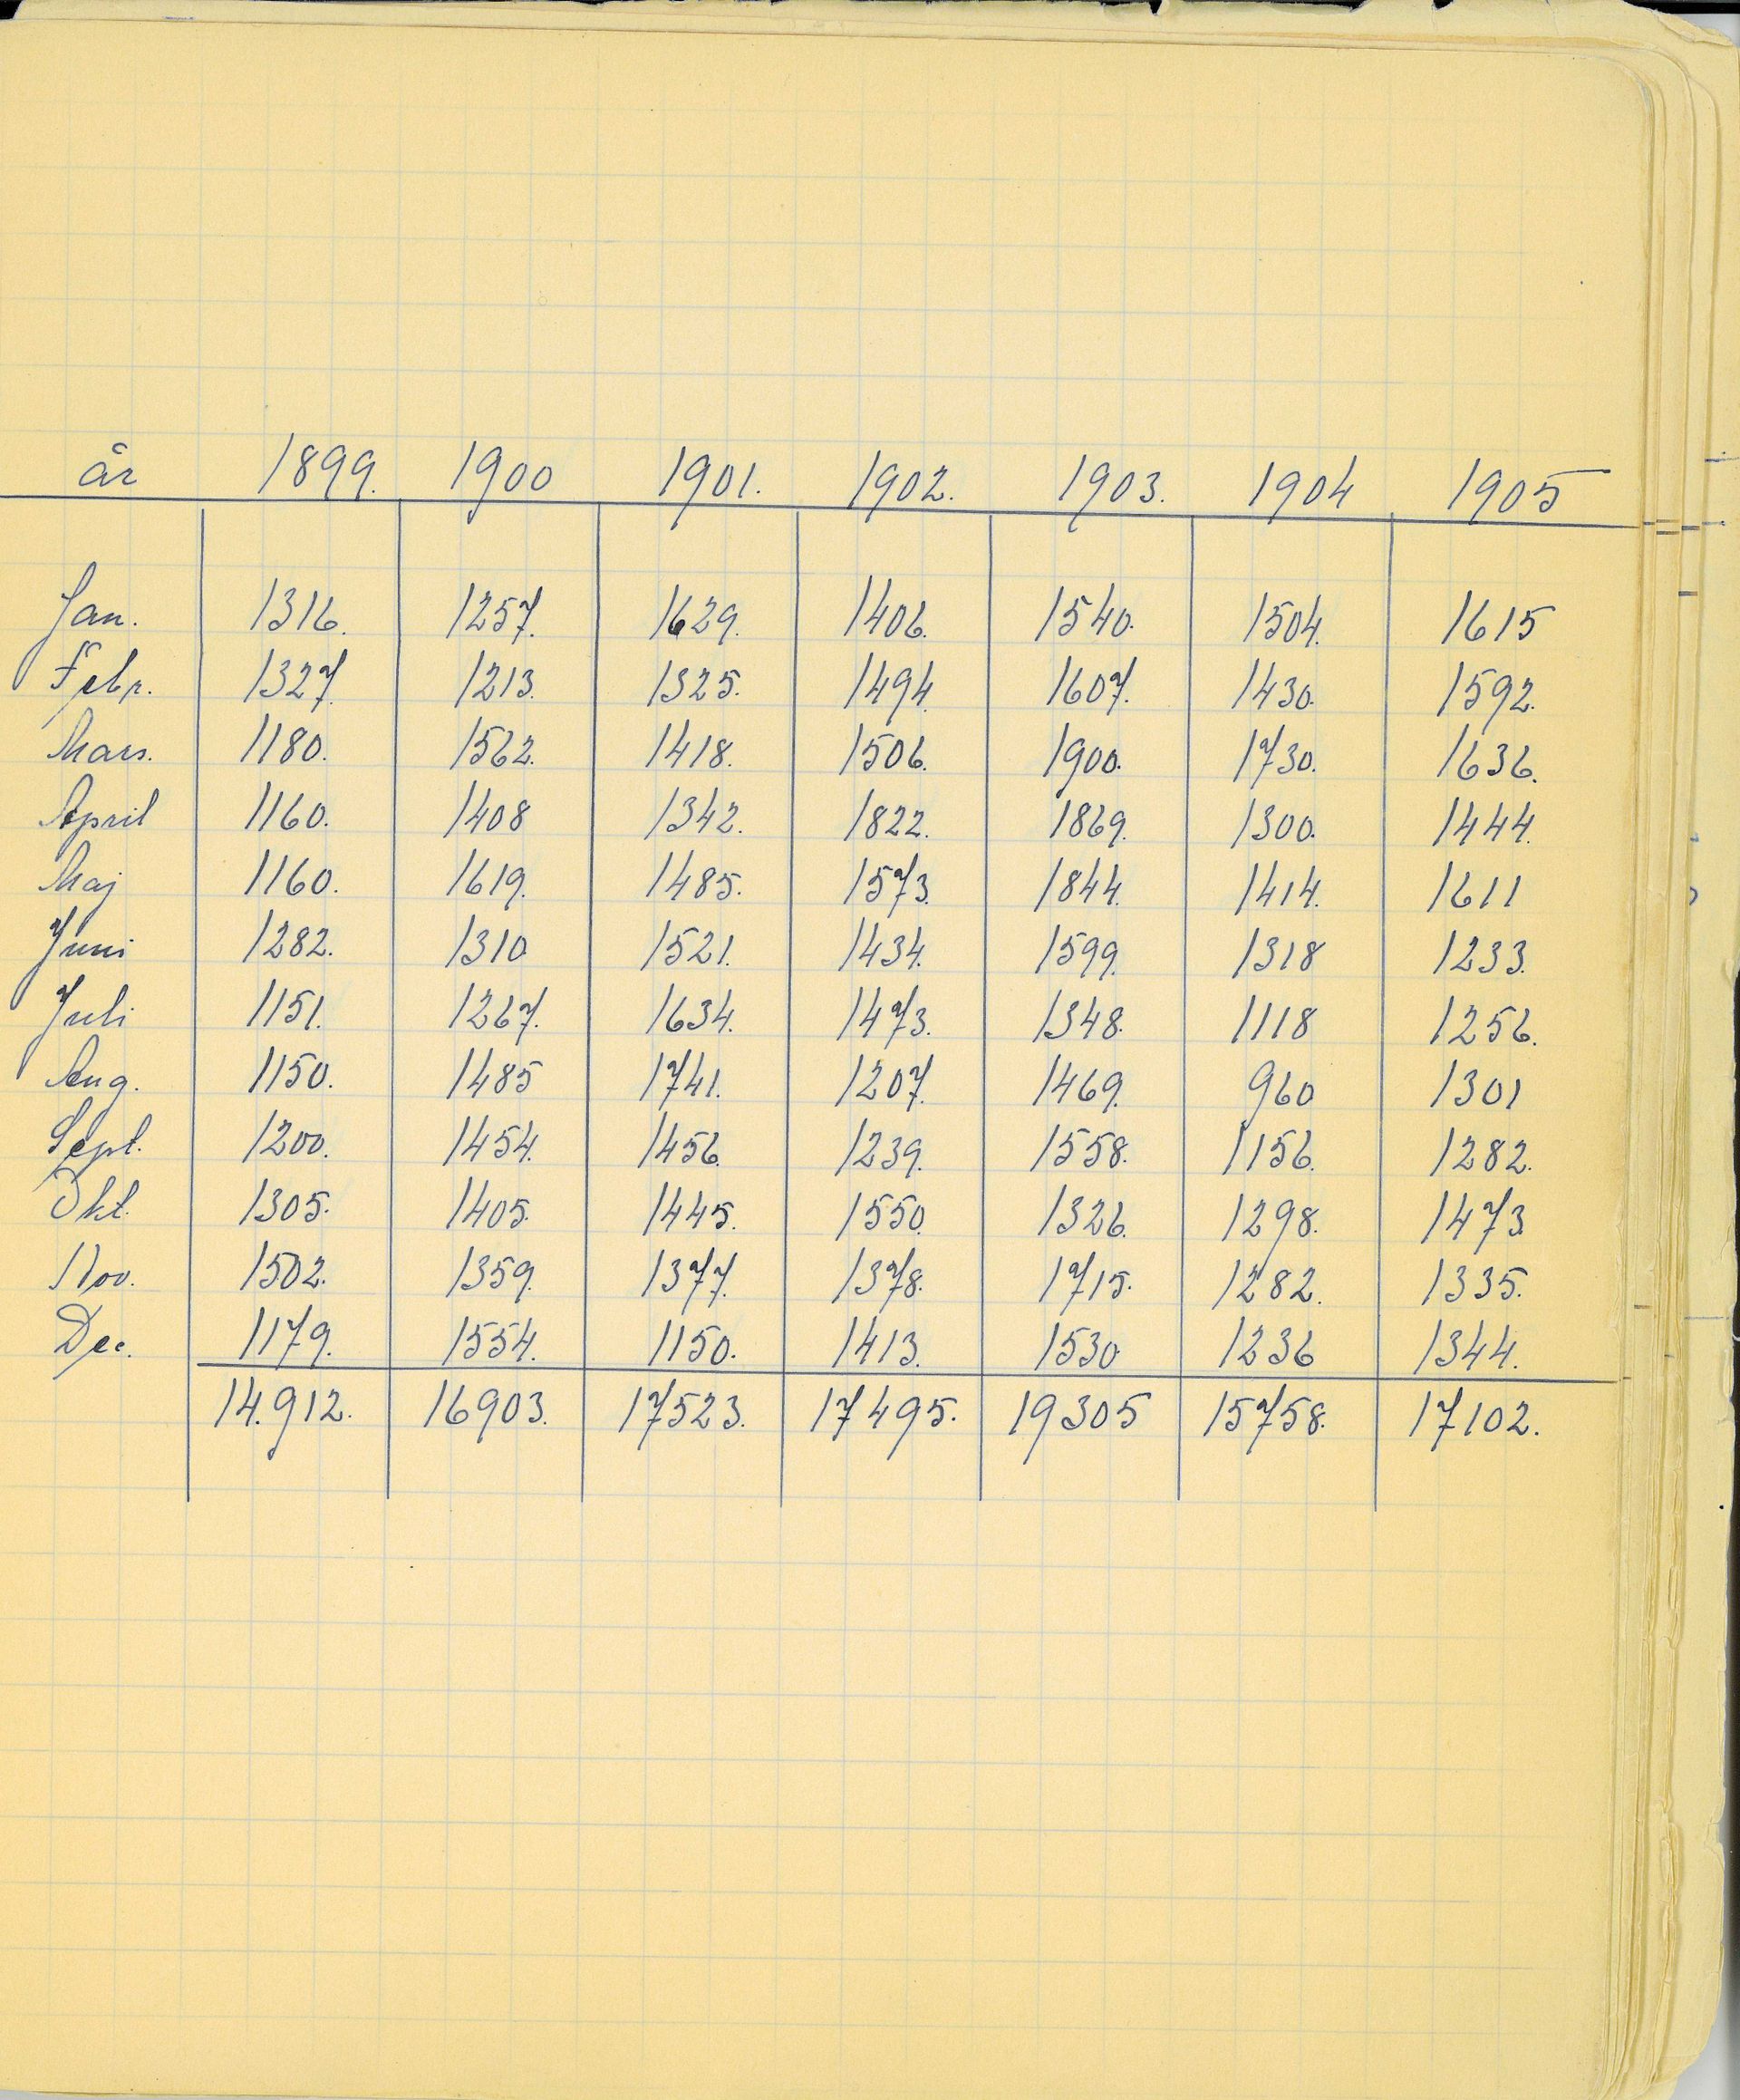 år 1899. 1900 1901. 1902. 1903. 1904 1905
Jan. 1316. 1257. 1629. 1406. 1540. 1504. 1615
Febr. 1327. 1213. 1325. 1494. 1607. 1430. 1592.
Mars. 1180. 1562. 1418. 1506. 1900. 1730. 1636.
April 1160. 1408 1342. 1822. 1869. 1300. 1444.
Maj 1160. 1619. 1485. 1573. 1844. 1414. 1611
Juni 1282. 1310 1521. 1434. 1599. 1318 1233.
Juli 1151. 1267. 1634. 1473. 1348. 1118 1256.
Aug. 1150. 1485 1741. 1207. 1469. 960 1301
Sept. 1200. 1454. 1456. 1239. 1558. 1156. 1282.
Okt. 1305. 1405. 1445. 1550. 1326. 1298. 1473
Nov. 1502. 1359. 1377. 1378. 1715. 1282. 1335.
Dec. 1179. 1554. 1150. 1413. 1530 1236 1344.
14.912. 16903. 17523. 17495. 19305 15758. 17102.